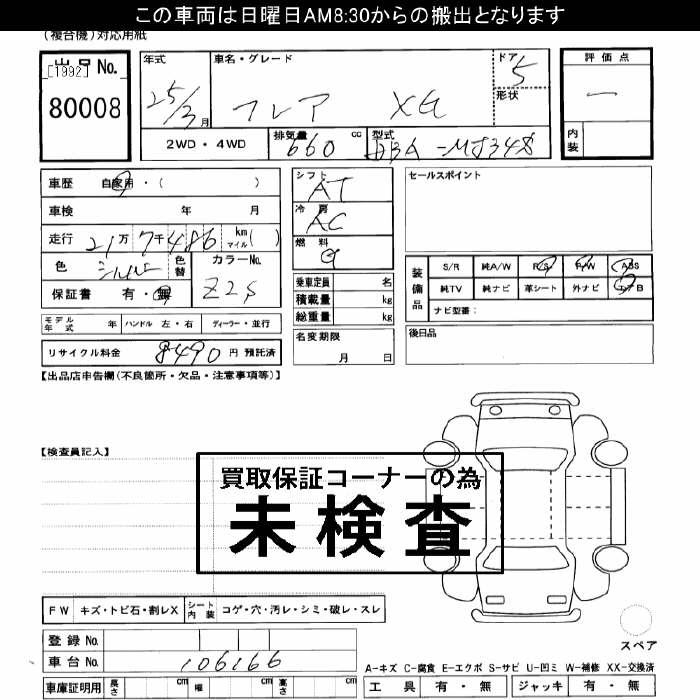 この車両は日曜日AM8:30からの搬出となります
(複合機)対応用紙
出品 No.
[1992]
80008
年式
25/3 月
車名・グレード
フレア XG
ドア 5
形状
評価点
—
内装
2WD・4WD
排気量 660 cc
型式 DBA-MJ34S
車歴 自家用・( )
車検 年 月
走行 21万7千486 km マイル( )
色 シルバー 色替
カラーNo. Z2S
保証書 有・無
モデル年式 年 ハンドル 左・右 ディーラー・並行
リサイクル料金 8490 円 預託済
シフト AT
冷房 AC
燃料 G
乗車定員 名
積載量 kg
総重量 kg
名変期限
月 日
セールスポイント
装備品
S/R 純A/W P/S P/W ABS
純TV 純ナビ 革シート 外ナビ エアB
ナビ型番:
後日品
【出品店申告欄(不良箇所・欠品・注意事項等)】
【検査員記入】
買取保証コーナーの為
未検査
FW キズ・トビ石・割レX シート内装 コゲ・穴・汚レ・シミ・破レ・スレ
登録 No.
車台 No. 106166
車庫証明用 長さ cm 幅 cm 高さ cm
スペア
A-キズ C-腐食 E-エクボ S-サビ U-凹ミ W-補修 XX-交換済
工具 有・無 ジャッキ 有・無